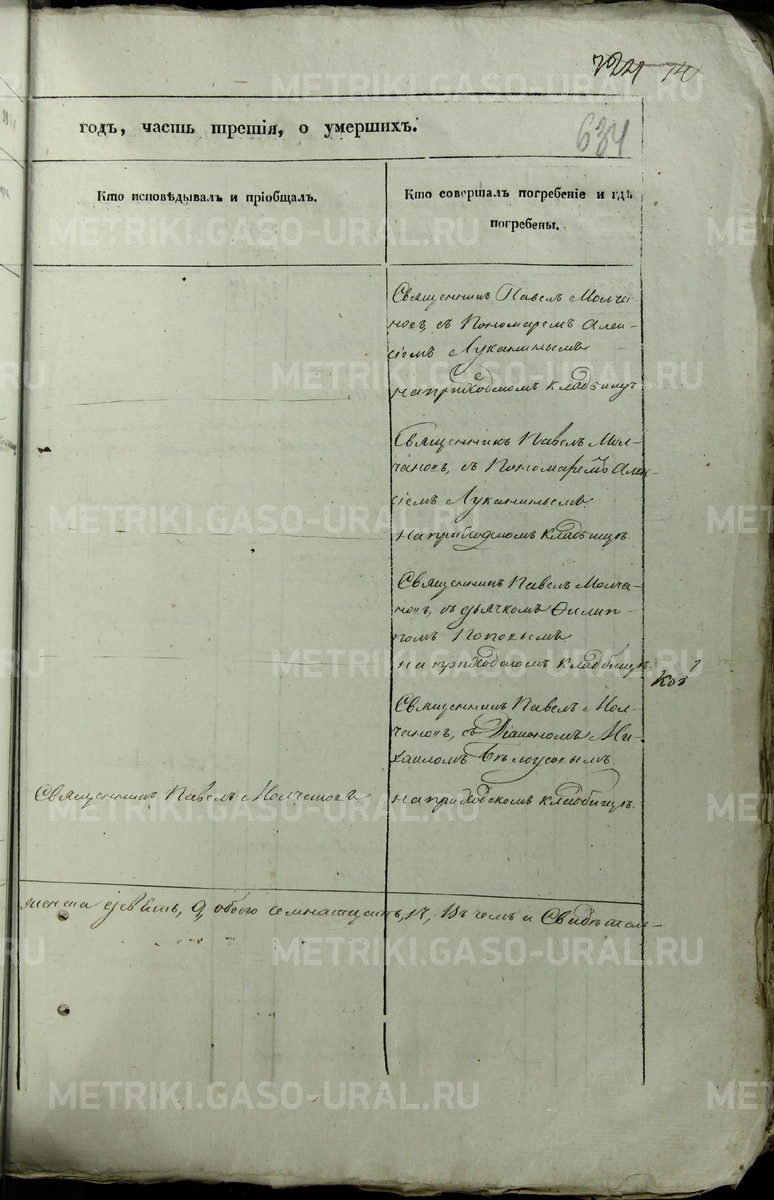 724 74
634
годъ, часть третія, о умершихъ.
Кто исповѣдывалъ и пріобщалъ.
Кто совершалъ погребеніе и гдѣ
погребены.
Священникъ Павелъ Молча
новъ, съ Пономаремъ Алек-
сіемъ Луканинымъ
на приходскомъ кладбищѣ
Священникъ Павелъ Мол-
чановъ, съ Пономаремъ Алек-
сіемъ Луканинымъ
на приходскомъ кладбищѣ
Священникъ Павелъ Молча-
новъ, съ дьячкомъ Филип-
помъ Поповымъ
на приходскомъ кладбищѣ
Священникъ Павелъ Мол-
чановъ, съ Діакономъ Ми-
хаиломъ Бѣлоусовымъ
Священникъ Павелъ Молчановъ
на приходскомъ кладбищѣ.
женска девять, 9, обоего семнатцать, 17, Въ чемъ и Свидѣтель-
METRIKI.GASO-URAL.RU